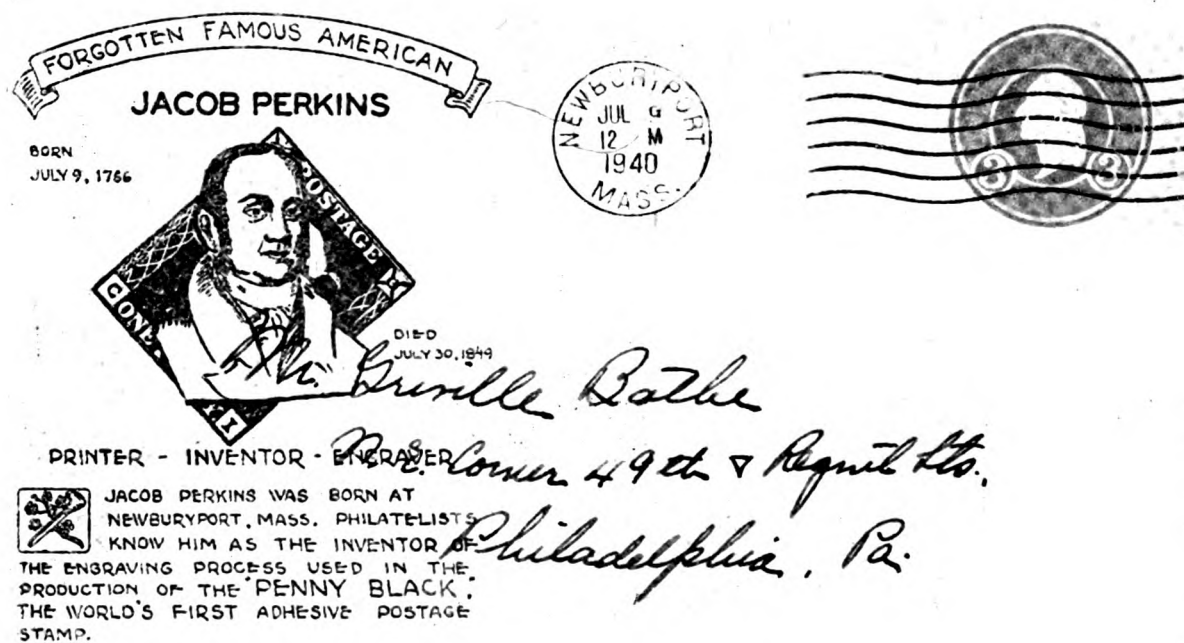 FORGOTTEN FAMOUS AMERICAN
JACOB PERKINS
BORN
JULY 9, 1766
POSTAGE
ONE
DIED
JULY 30, 1849
PRINTER - INVENTOR - ENGRAVER
JACOB PERKINS WAS BORN AT
NEWBURYPORT, MASS. PHILATELISTS
KNOW HIM AS THE INVENTOR OF
THE ENGRAVING PROCESS USED IN THE
PRODUCTION OF THE "PENNY BLACK",
THE WORLD'S FIRST ADHESIVE POSTAGE
STAMP.
NEWBURYPORT
JUL 9
12 M
1940
MASS.
3 3
Mr. Greville Bathe
N.E. Corner 49th & Regent Sts.
Philadelphia, Pa.